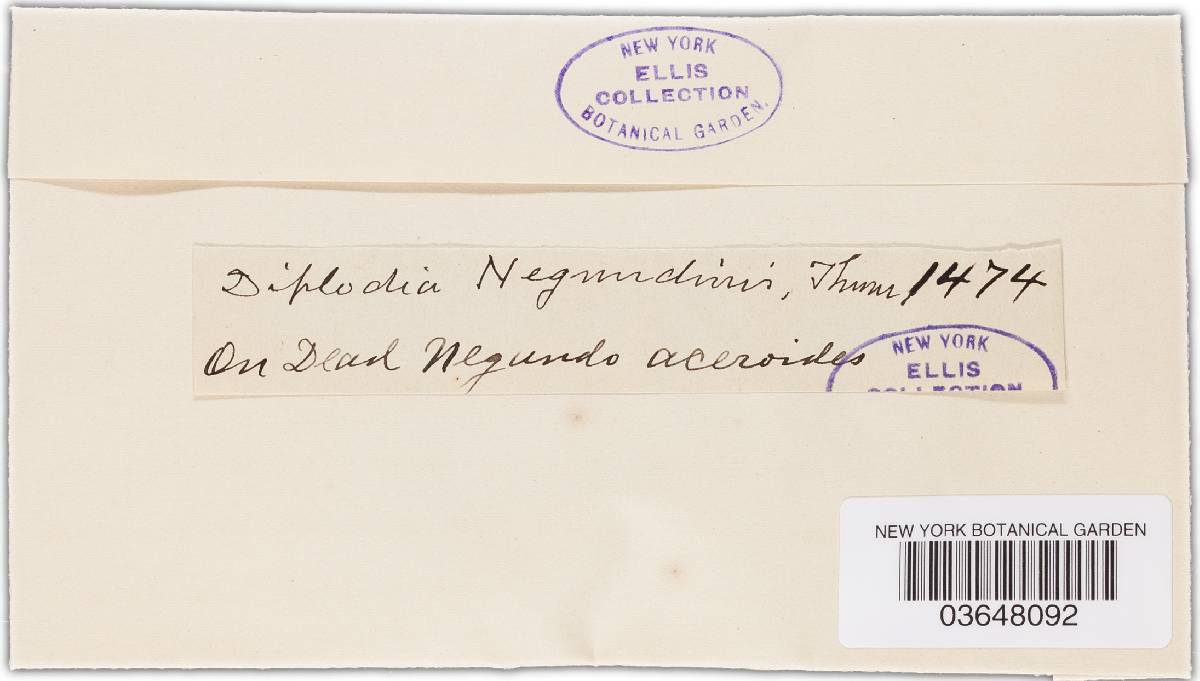 NEW YORK
ELLIS
COLLECTION
BOTANICAL GARDEN.
Diplodia Negundinis, Thum 1474
On Dead Negundo aceroides
NEW YORK
ELLIS
COLLECTION
NEW YORK BOTANICAL GARDEN
03648092